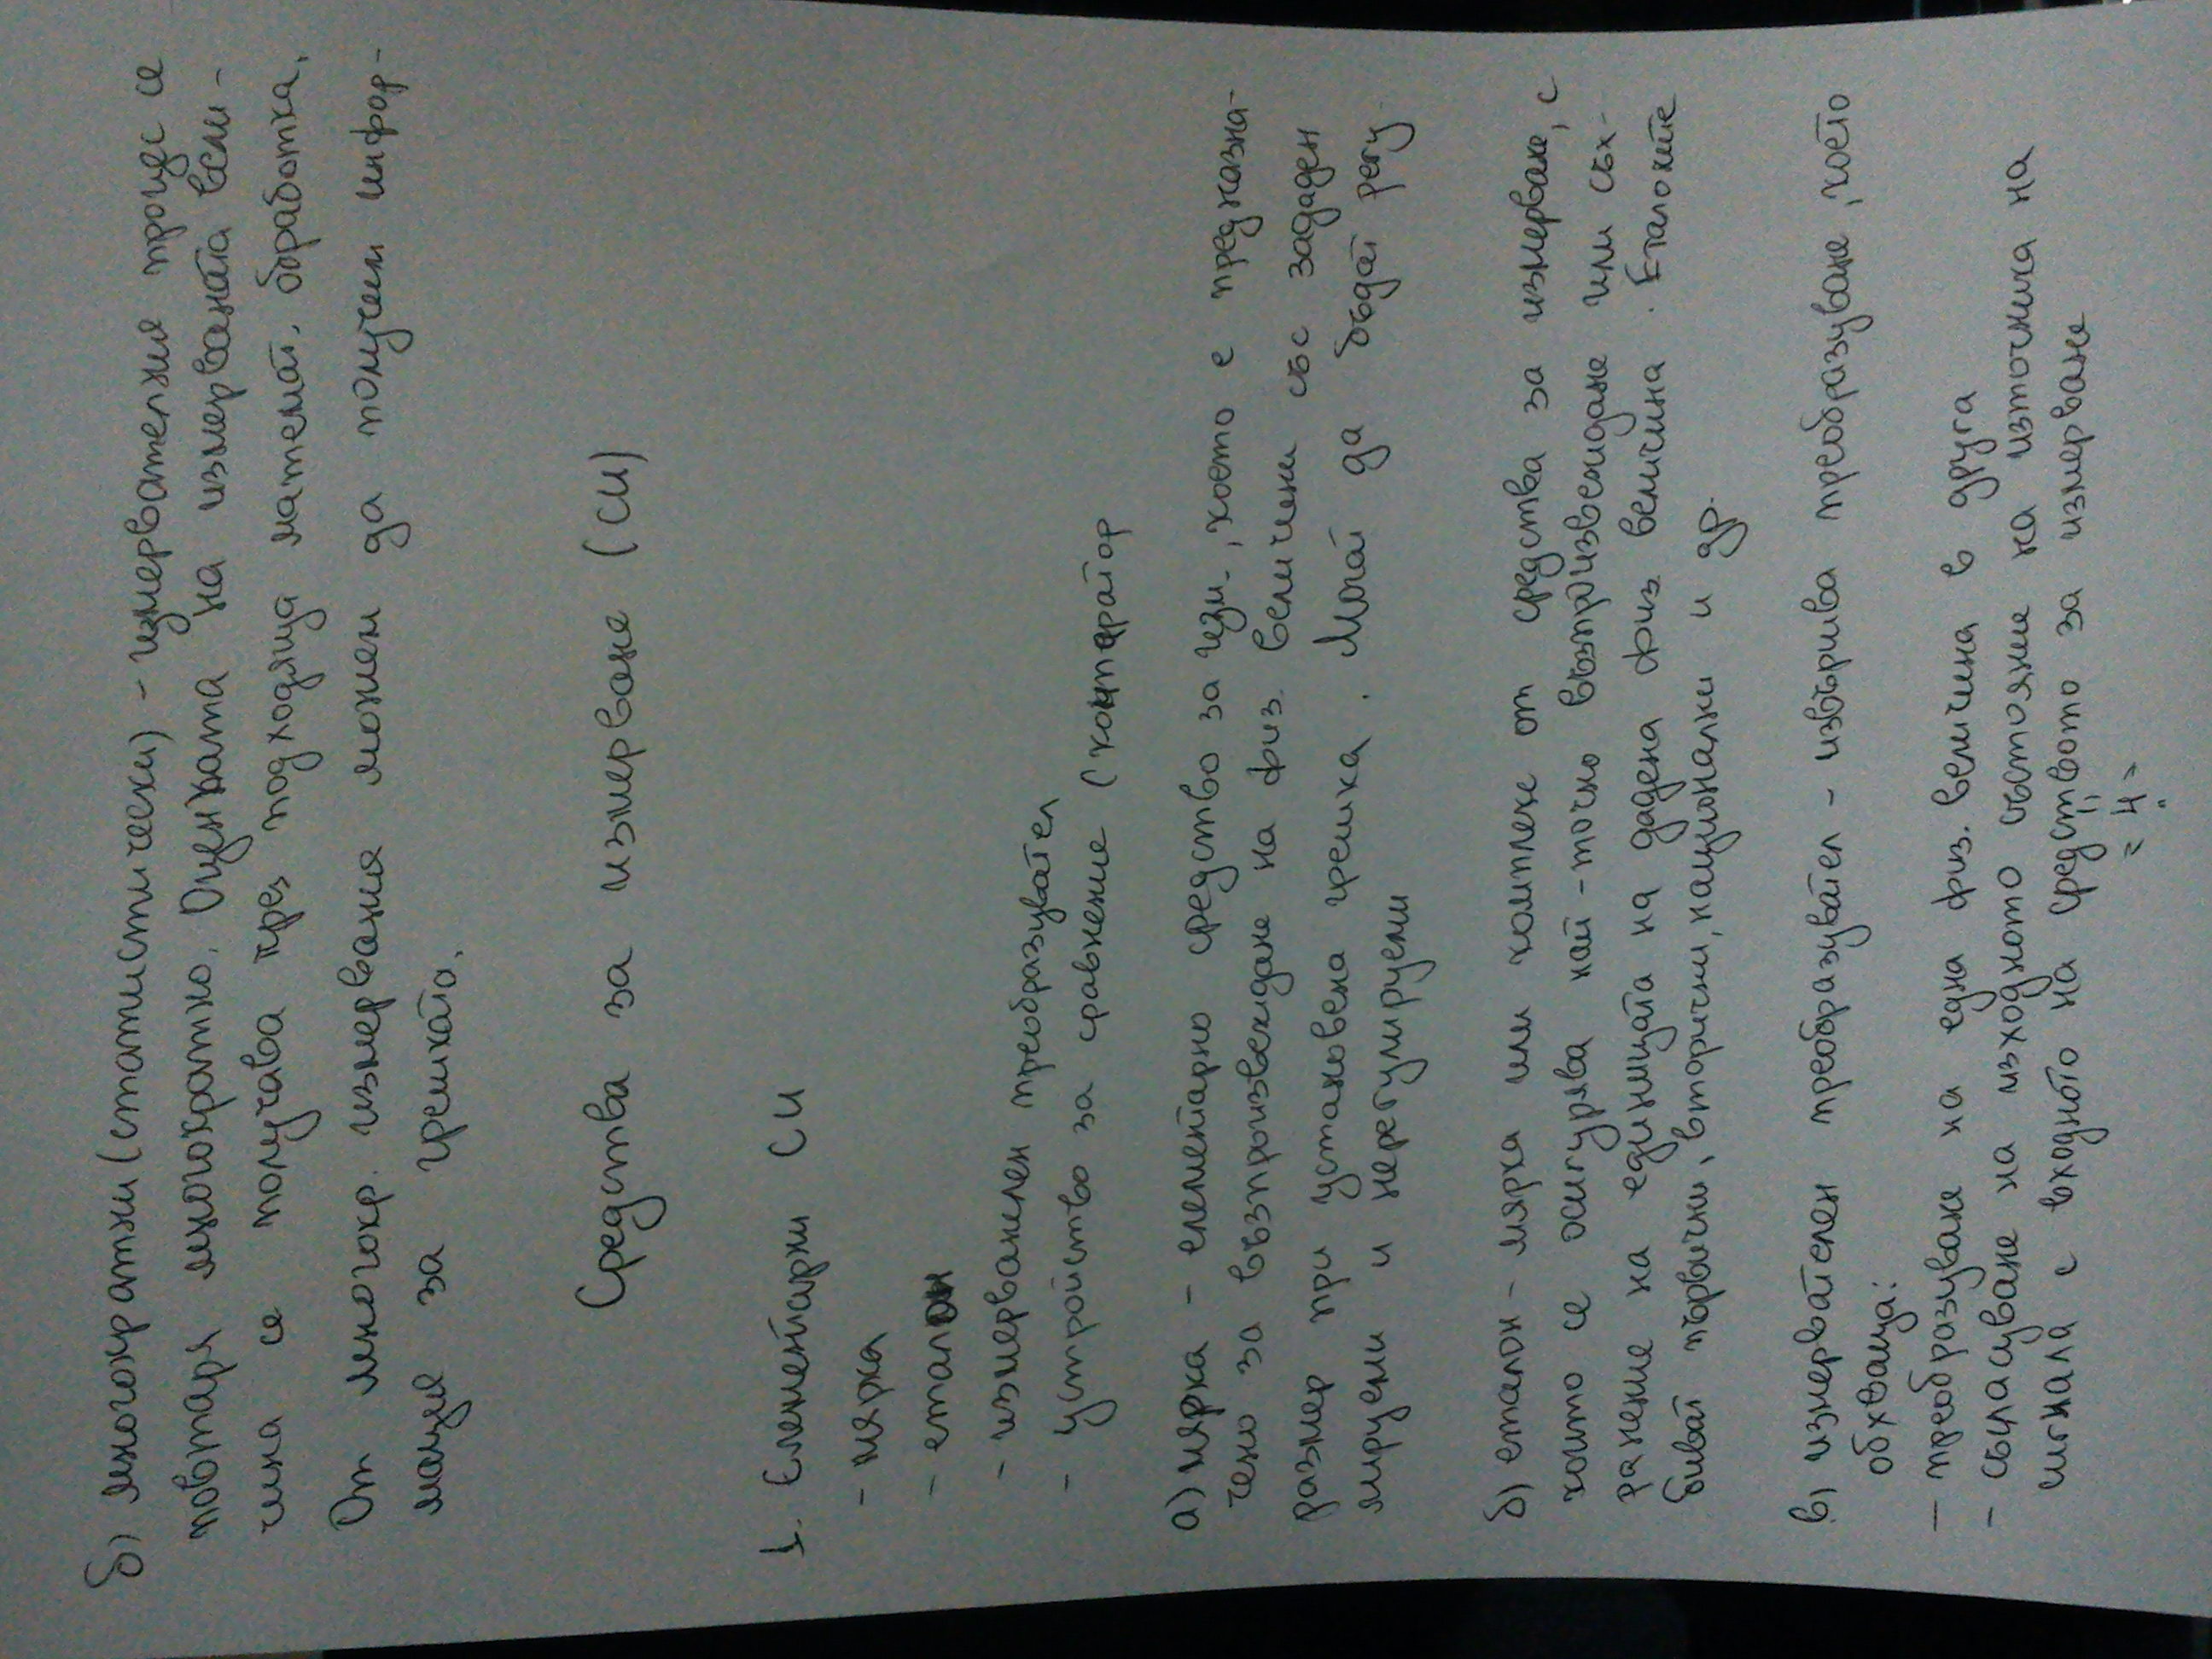 б) многократни (статистически) - измервателния процес се
повтаря многократно. Оценката на измерваната вели-
чина се получава през подходяща математ. обработка.
От многокр. измервания можем да получим инфор-
мация за грешката.
Средства за измерване (СИ)
1. Елементарни СИ
- мярка
- еталон
- измервателен преобразувател
- устройство за сравнение (компаратор
а) мярка - елементарно средство за изм., което е предназна-
чено за възпроизвеждане на физ. величини със зададен
размер при установена грешка. Могат да бъдат регу-
лируеми и нерегулируеми
б) еталон - мярка или комплекс от средства за измерване, с
които се осигурява най-точно възпроизвеждане или съх-
ранение на единицата на дадена физ. величина. Еталоните
биват първични, вторични, национални и др.
в) измервателен преобразувател - извършва преобразуване, което
обхваща:
- преобразуване на една физ. величина в друга
- съгласуване на изходното състояние на източника на
сигнала с входното на средството за измерване
"4"